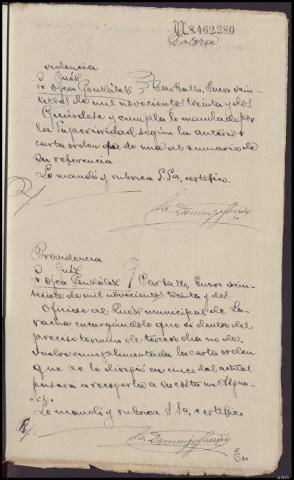 U.8.462,280
Providencia
Juez
Sr Ojea González } Carballo, Enero vein-
titres de mil novecientos treinta y dos
Guárdese y cumpla lo mandado por
la Superioridad según la anterior
carta orden que de una al sumario de
su referencia.
Lo mandó y rubrica S.Sª, certifico.
Providencia
Juez
Sr Ojea González } Carballo, Enero vein-
tisiete de mil novecientos treinta y dos.
Oficiese al Juez municipal de La-
racha encargándole que si dentro del
preciso termino de tercero dia no de-
vuelve cumplimentada la carta orden
que se le dirigió en once del actual
pasará a recogerla a su costa un Algua-
cil.
Lo mandó y rubrica S.Sª, certifico
En